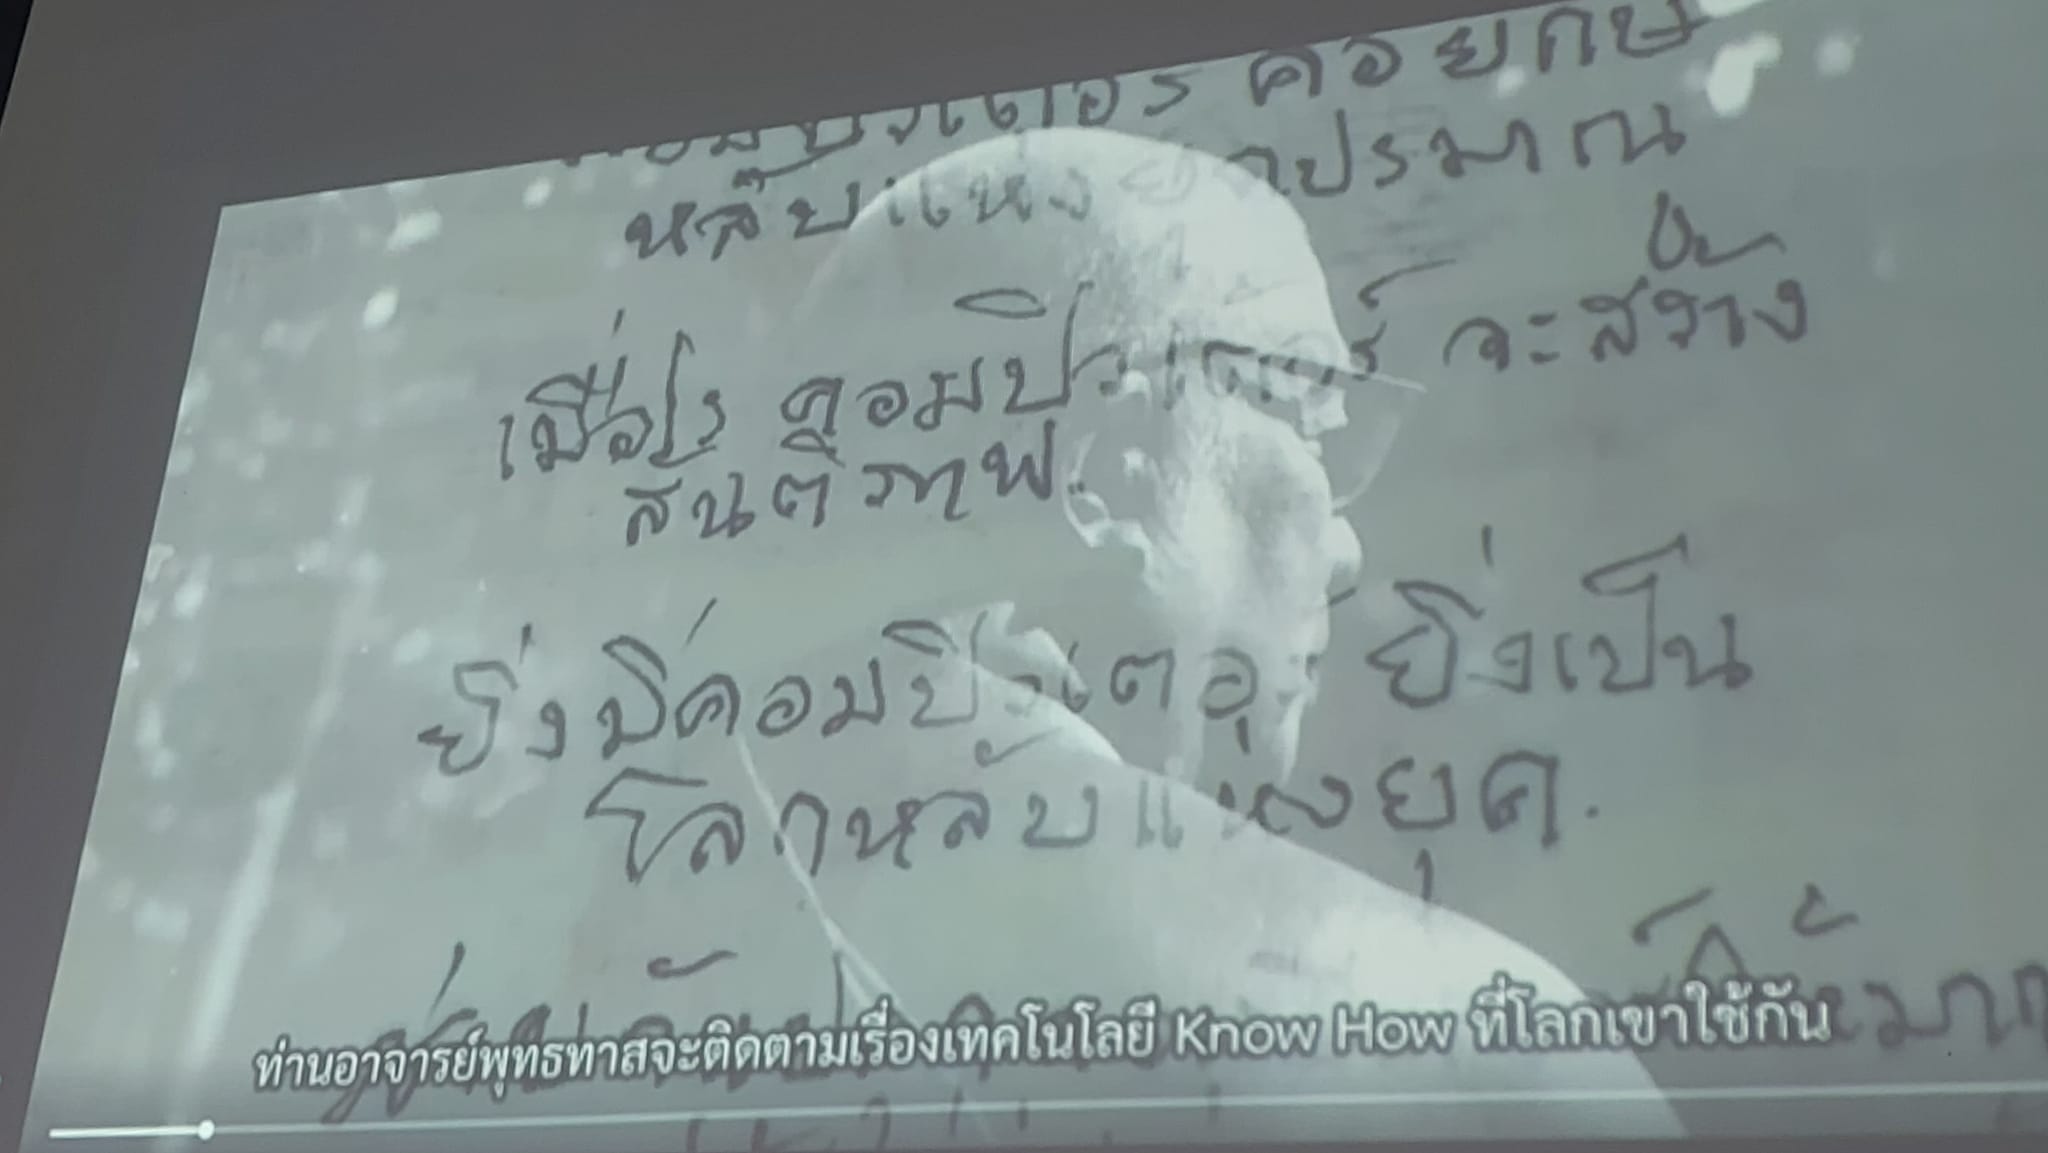 คอมปิวเตอร์ คือยักษ์
หลับแห่งยุคปรมาณ
เมื่อไร คอมปิวเตอร์ จะสร้าง
สันติภาพ.
ยิ่งมีคอมปิวเตอร์ ยิ่งเป็น
โลกหลับแห่งยุค.
ท่านอาจารย์พุทธทาสจะติดตามเรื่องเทคโนโลยี Know How ที่โลกเขาใช้กัน